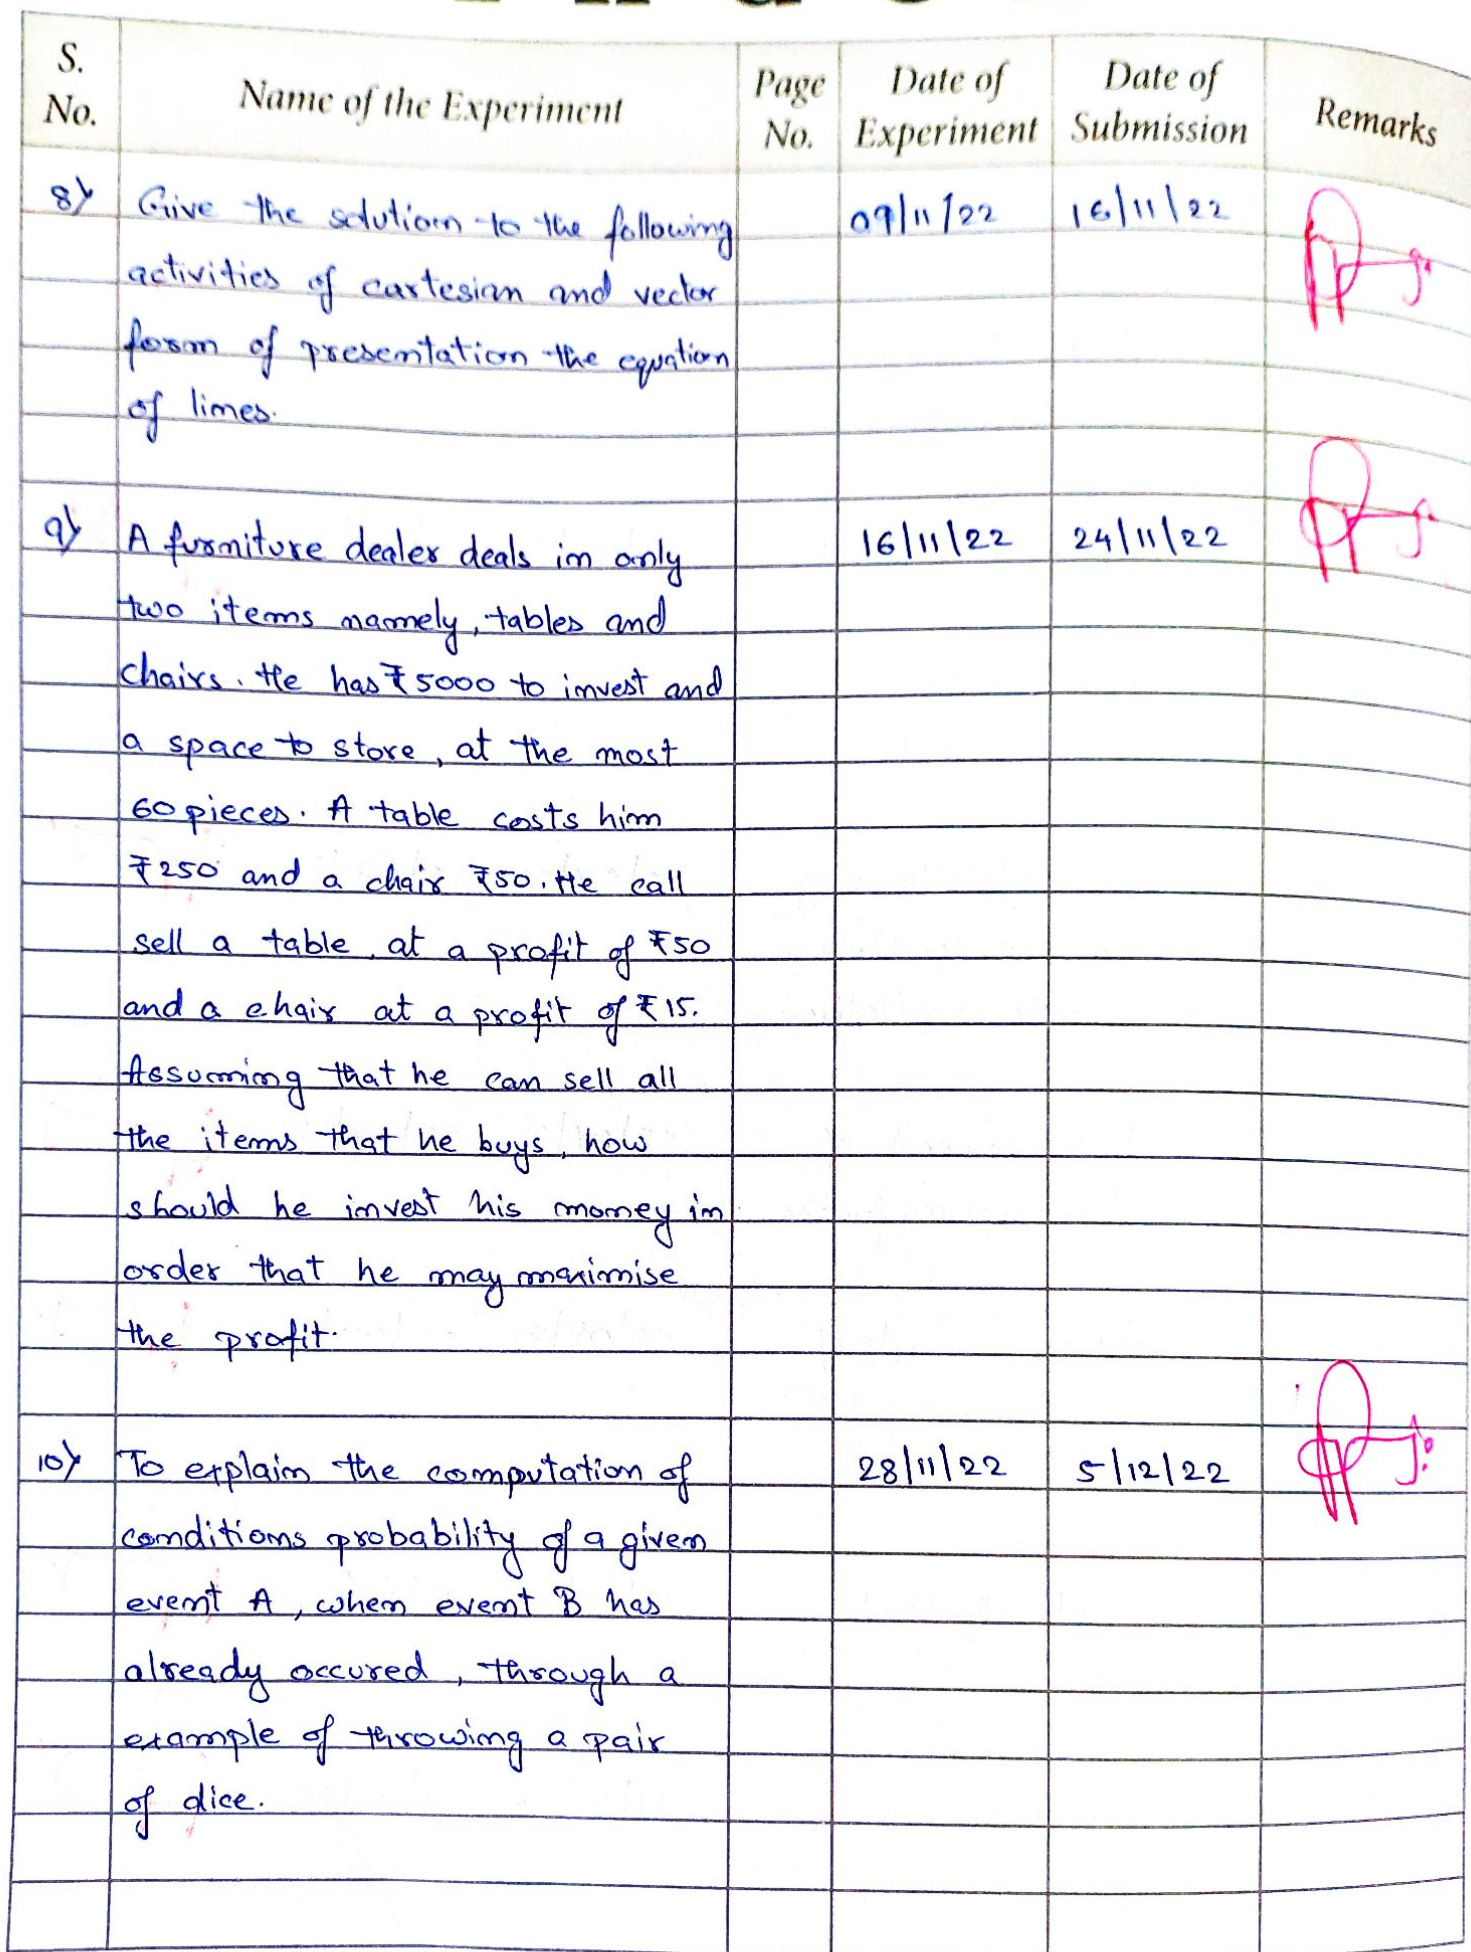 S. No.
Name of the Experiment
Page No.
Date of Experiment
Date of Submission
Remarks
8) Give the solution to the following 09/11/22 16/11/22
activities of cartesian and vector
form of presentation the equation
of lines.
9) A furniture dealer deals in only 16/11/22 24/11/22
two items namely, tables and
chairs. He has ₹5000 to invest and
a space to store, at the most
60 pieces. A table costs him
₹250 and a chair ₹50. He call
sell a table, at a profit of ₹50
and a chair at a profit of ₹15.
Assuming that he can sell all
the items that he buys, how
should he invest his money in
order that he may maximise
the profit.
10) To explain the computation of 28/11/22 5/12/22
conditions probability of a given
event A, when event B has
already occured, through a
example of throwing a pair
of dice.